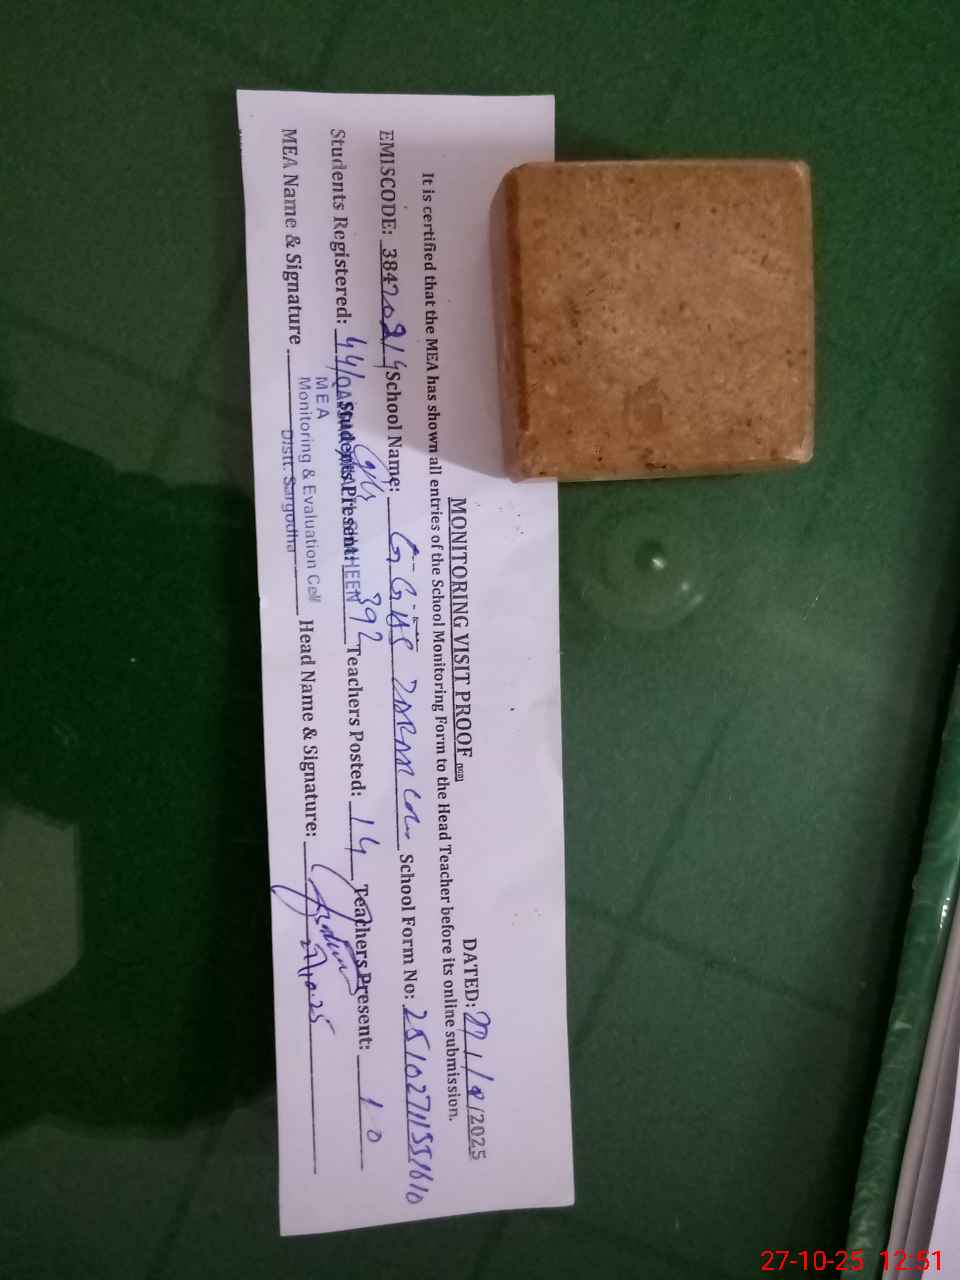 MONITORING VISIT PROOF
DATED: 27/10/2025
It is certified that the MEA has shown all entries of the School Monitoring Form to the Head Teacher before its online submission.
EMISCODE: 38470214 School Name: GGHS School Form No: 25102711551610
Students Registered: 44 Students Present: 392 Teachers Posted: 14 Teachers Present: 10
MEA
Monitoring & Evaluation Cell
Distt. Sargodha
MEA Name & Signature Head Name & Signature: 27.10.25
27-10-25 12:51